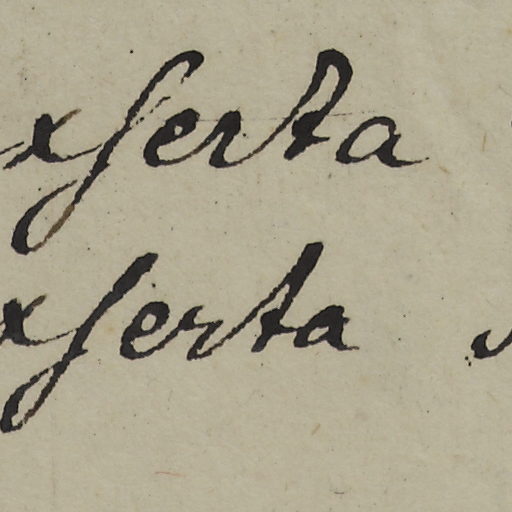 xſerta
xſerta